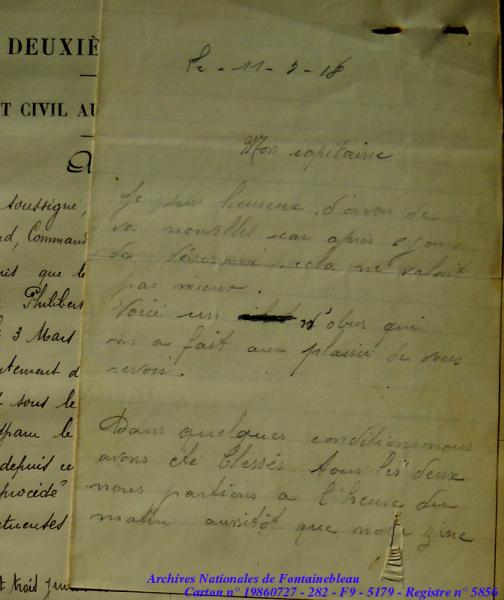 DEUXIÈ
T CIVIL AU
soussigné,
d, Command
is que le
Philibert
3 Mars
tement d
sous le
spare le
depuis ce
procédé"
ctueuses
t trois
Le - 11 - 3 - 16
Mon capitaine
Je suis heureux d'avoir de
vos nouvelles car apres jours
de cela ne valait
pas mieux.
Voici un d'obus qui
m a fait aux plaisir de vous
revoir.
Dans quelques conditions nous
avons été blessés tous les deux
nous partions a l'heure du
matin aussitôt que notre zinc
Archives Nationales de Fontainebleau
Carton n° 19860727 - 282 - F9 - 5179 - Registre n° 5856